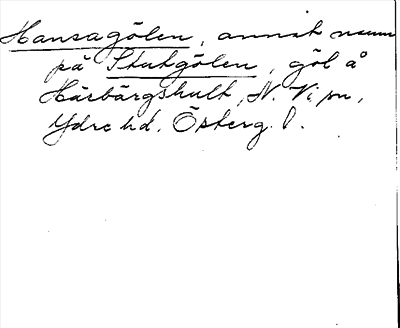 Hansagölen, annat namn
på Stutgölen, göl å
Härbärgshult, N. Vi sn,
Ydre hd. Österg. l.